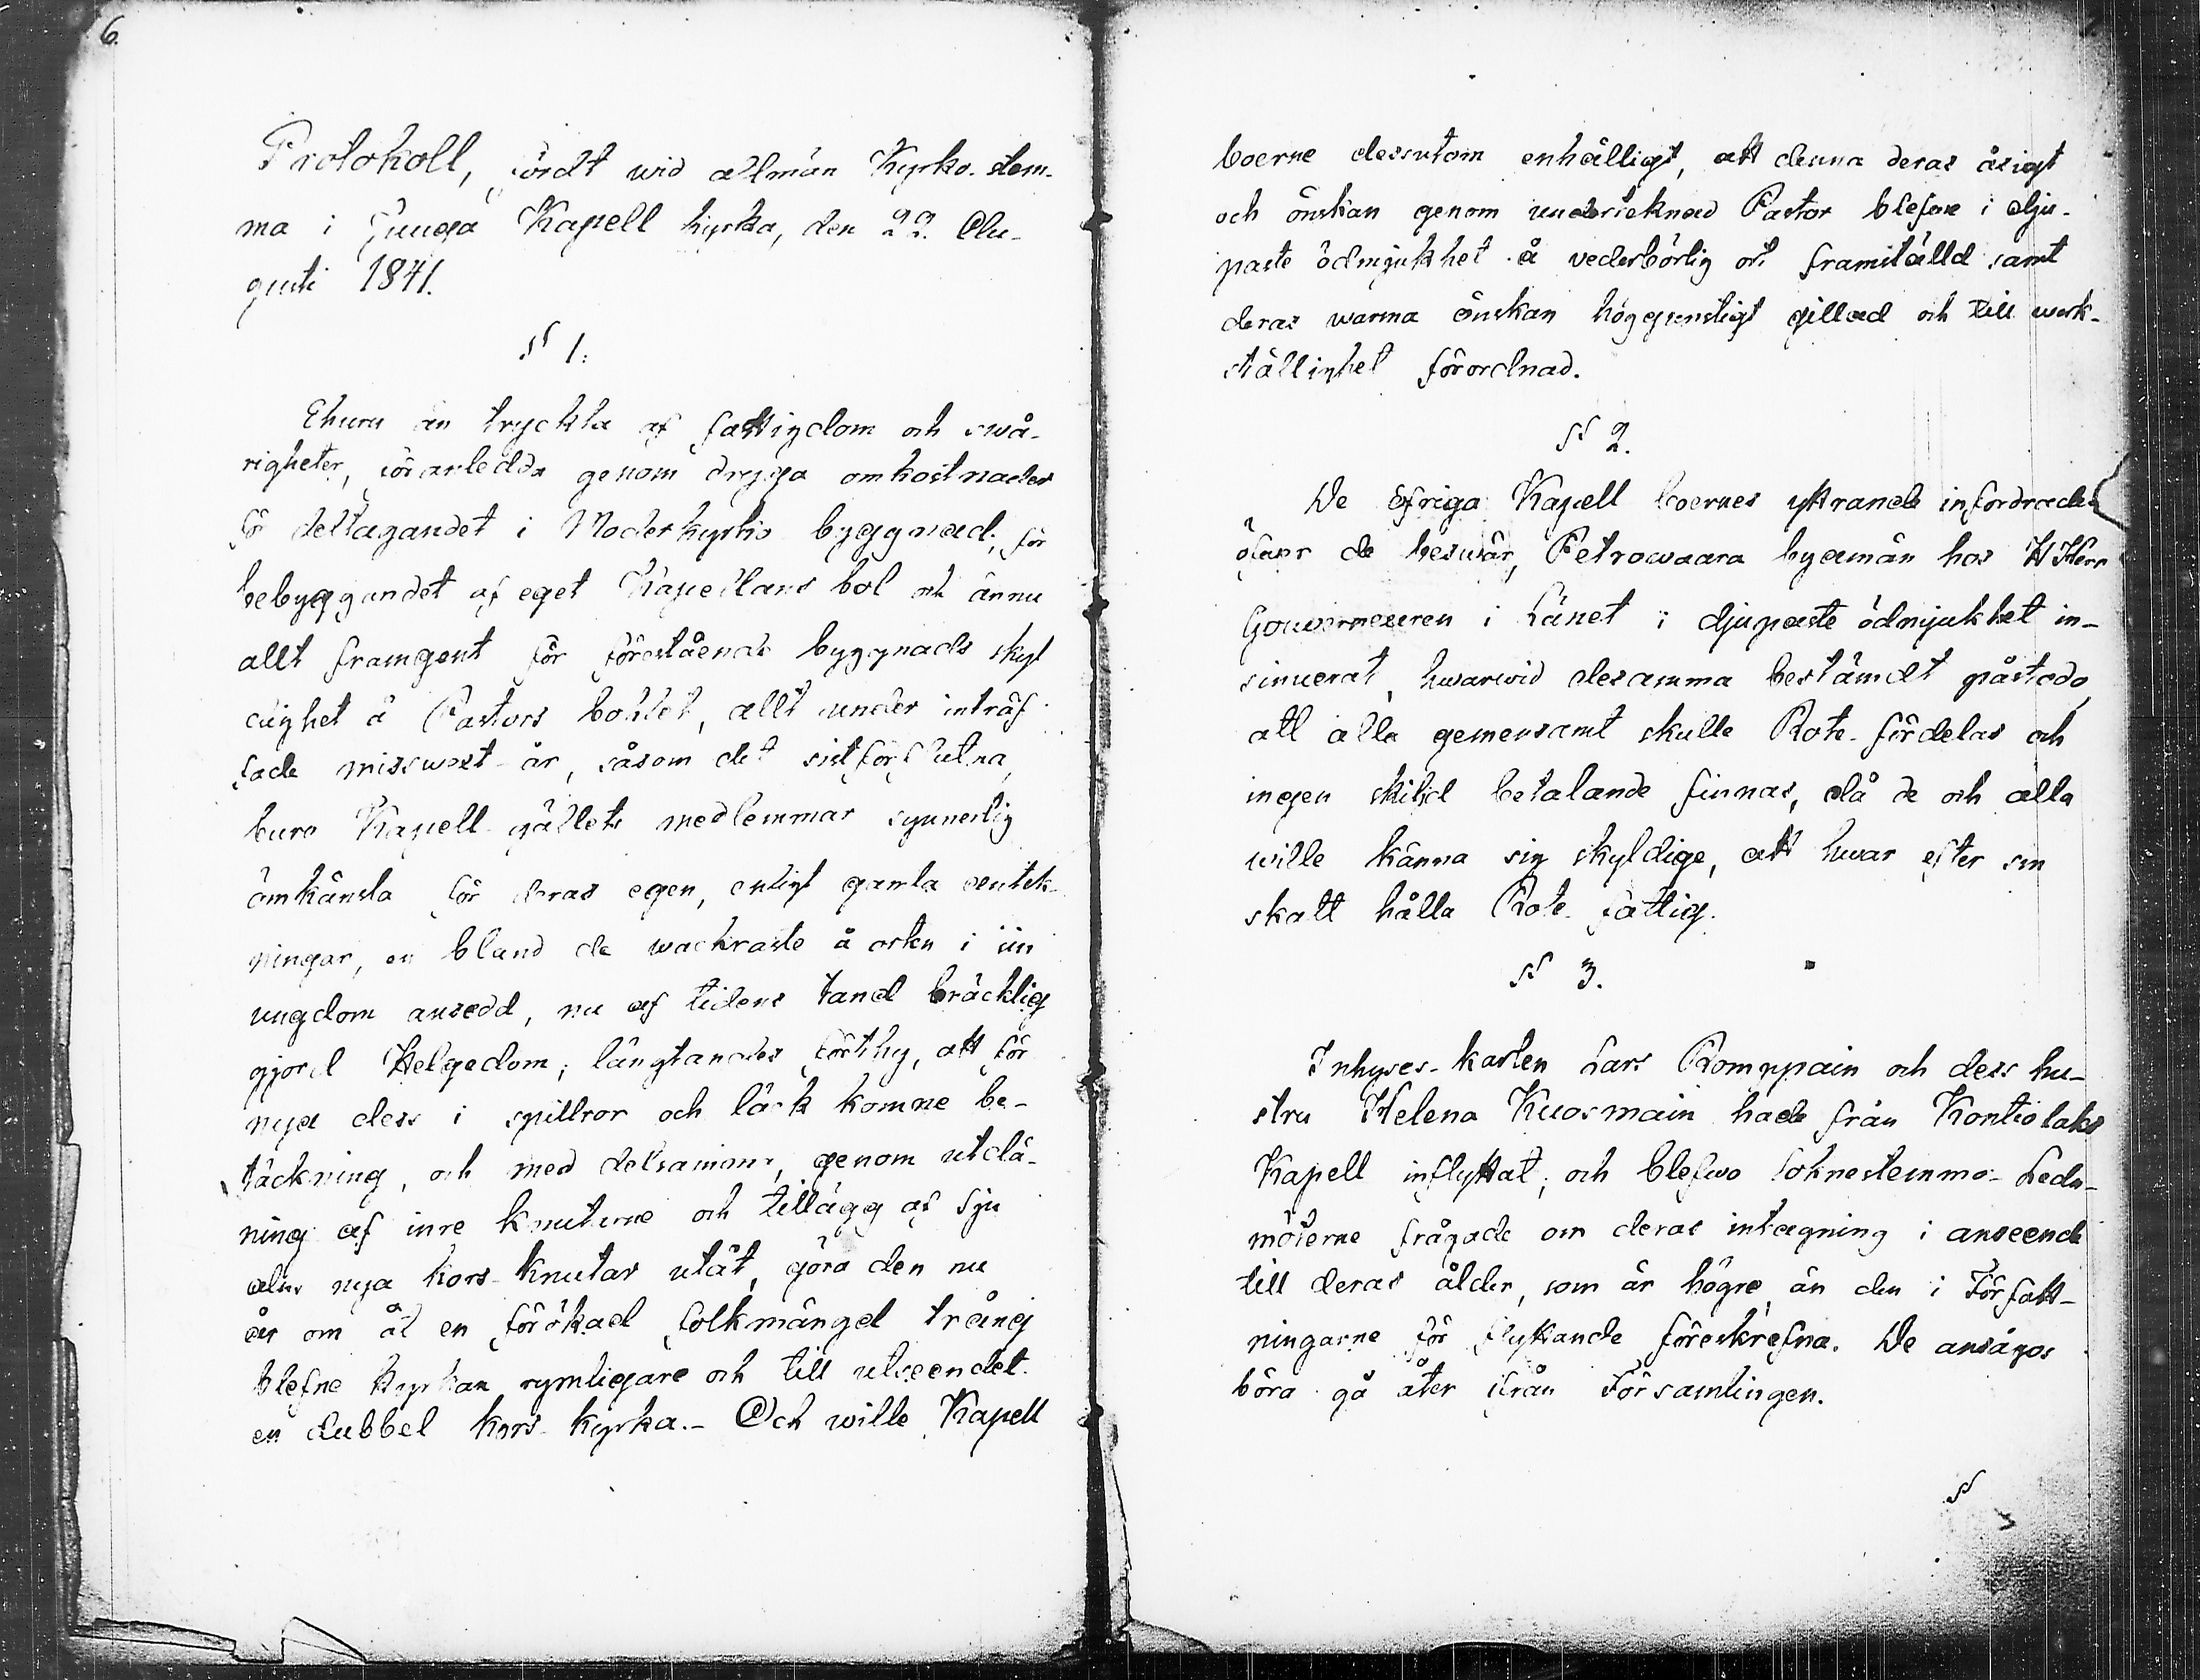 6.
Protokoll, fördt wid allmän Kyrko-stem-
ma i Juuga Kapell kyrka, den 22. Au-
gusti 1841.
§ 1.
Ehuru än tryckta af fattigdom och swå-
righeter, föranledda genom dryga omkostnader
för deltagandet i Moderkyrko byggnad, för
bebyggandet af eget Kapellans bol och ännu
allt framgent för förestående byggnads skyl
dighet å Pastors bohlet, allt under inträf
fade misswext-år, såsom det sistförflutna,
buro Kapell-gällets medlemmar synnerlig
ömkänsla för deras egen, enligt gamla anteck-
ningar, en bland de wackraste å orten i sin
ungdom ansedd, nu af tidens tand bräcklig
gjord Helgedom; längtandes förthy, att för
nya dess i spillror och läck komne be-
täckning, och med detsamma, genom utdä-
ning af inre knuterne och tillägg af sju
alns nya kors-knutar utåt, göra den nu
år om år en förökad folkmängd trång
blefne Kyrkan rymligare och till utseendet
en dubbel kors-kyrka.- Och wille Kapell
boerne dessutom enhälligt, att denna deras åsigt
och önskan genom undertecknad Pastor blefwe i dju-
paste ödmjukhet å vederbörlig ort framställd samt
deras warma önskan höggunstigt gillad och till werk-
ställighet förordnad.
§ 2.
De öfriga Kapell boernes yttrande infordrades
öfwer de beswär, Petrowaara byamän hos H Herr
Gouverneuren i Länet i djupaste ödmjukhet in-
sinuerat, hwarwid desamma bestämdt påstodo,
att alla gemensamt skulle Rote-fördelas och
ingen skild betalande finnas, då de och alla
wille känna sig skyldige, att hwar efter sin
skatt hålla Rote-fattig.
§ 3.
Inhyses-karlen Lars Romppain och dess hu-
stru Helena Kuosmain hade från Kontiolaks
Kapell inflyttat; och blefwo Soknestemmo-Leda-
möterne frågade om deras intagning i anseende
till deras ålder, som är högre, än den i Författ-
ningarne för flyttande föreskrefna. De ansågos
böra gå åter ifrån Församlingen.
§